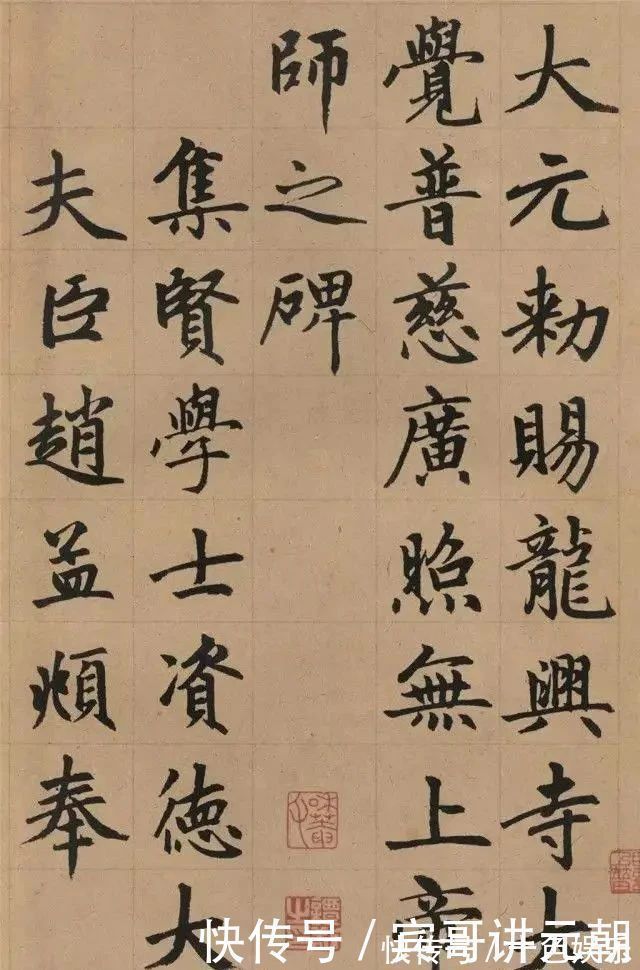 大元勑賜龍興寺大
覺普慈廣照無上帝
師之碑
集賢學士資德大
夫臣趙孟頫奉
快传号 / 哥讲元朝
快传号